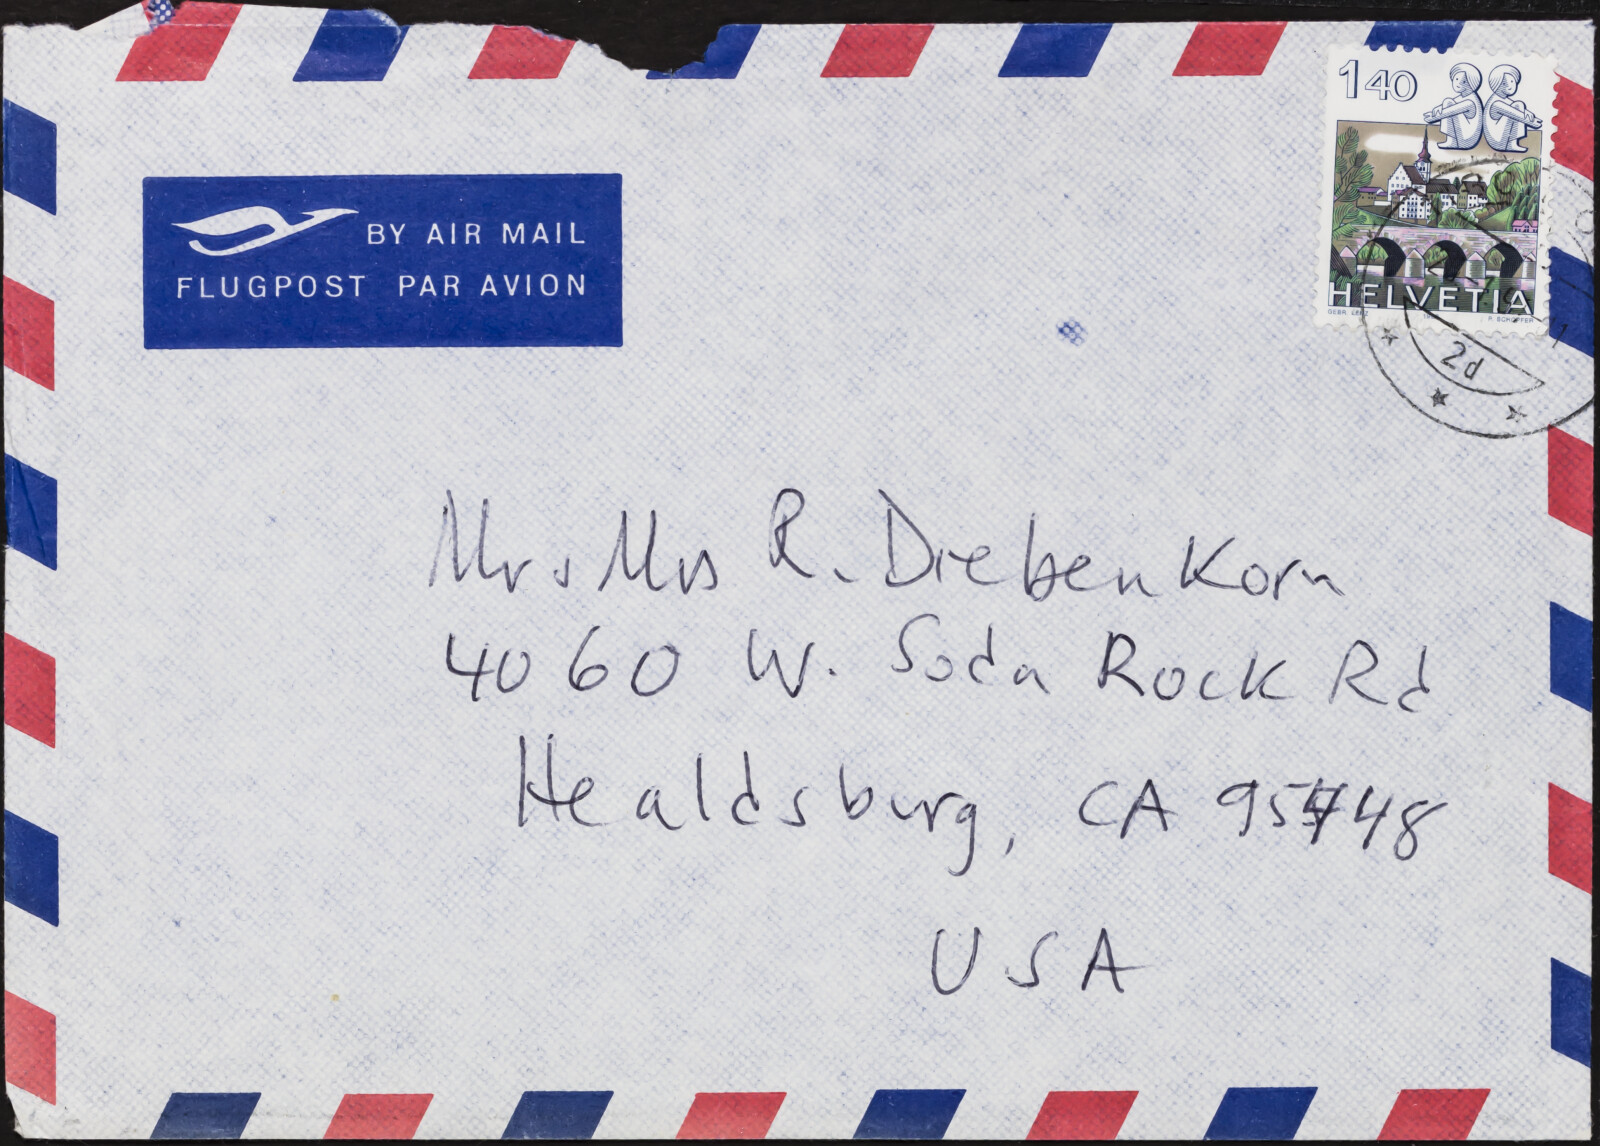 1 40
BY AIR MAIL
FLUGPOST PAR AVION
HELVETIA
GEBR. LENZ
R. SCHOPFER
2d
Mr & Mrs R. Diebenkorn
4060 W. Soda Rock Rd
Healdsburg, CA 95448
USA